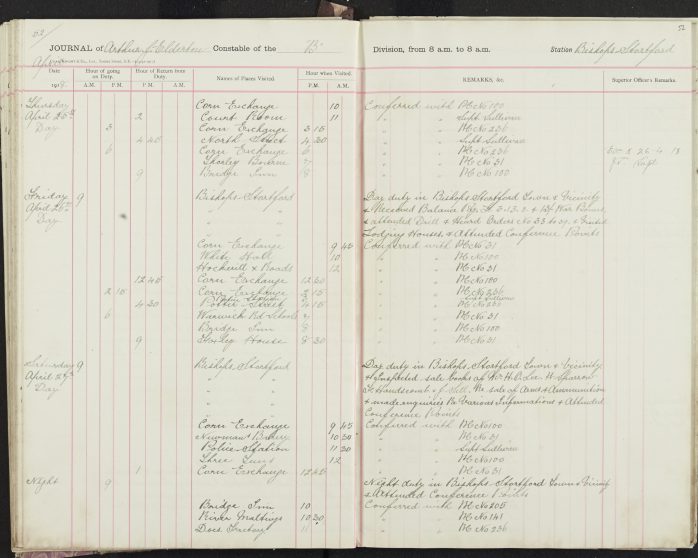 52
JOURNAL of Arthur J Elderton Constable of the "B"
April
Date Hour of going on Duty. Hour of Return from Duty. Names of Places Visited. Hour when Visited.
191 8. A.M. P.M. A.M. P.M. P.M. A.M.
Thursday Corn Exchange 10
April 25th 2 Court Room 11
Day 3 Corn Exchange 3 15
4 45 North Street 4 30
6 Corn Exchange 6
Thorley Bourne 7
9 Bridge Inn 8
Friday 9 Bishops Stortford
April 26th "
Day "
"
Corn Exchange 9 45
White Hall 10
Hockerill & Roads 12
12 45 Corn Exchange 12 30
2 15 Corn Exchange 2 15
4 30 Potter Street 4 15
6 Warwick Rd Schools 7
Bridge Inn 8
9 Thorley House 8 30
Saturday 9 Bishops Stortford
April 27th "
Day "
"
"
Corn Exchange 9 45
Newman's Brewery 10 30
Police Station 11 30
Three Tuns 12
1 Corn Exchange 12 45
Night 9
Bridge Inn 10
River Maltings 10 30
52
Division, from 8 a.m. to 8 a.m. Station Bishops Stortford
REMARKS, &c. Superior Officer's Remarks.
Conferred with PC No 100
" " Supt Sullivan
" " PC No 236
" " Supt Sullivan
" " PC No 236
" " PC No 31
" " PC No 100
Day duty in Bishops Stortford Town & Vicinity
& Received Balance Pay £ 3-13-2 & War Bonus
& attended Drill & Heard Orders No 33 to 39 & Visited
Lodging Houses & Attended Conference Points
Conferred with PC No 31
" " PC No 100
" " PC No 31
" " PC No 100
" " PC No 236
" " Supt Sullivan
" " PC No 236
" " PC No 31
" " PC No 100
" " PC No 31
Day duty in Bishops Stortford Town & Vicinity
& Inspected sale books of
Handscomb & J. Sell Re sale of Arms & Ammunition
& made enquiries Re Various Informations & Attended
Conference Points
Conferred with PC No 100
" " PC No 31
" " Supt Sullivan
" " PC No 100
" " PC No 31
Night duty in Bishops Stortford Town & Vicinity
& Attended Conference Points
Conferred with PC No 205
" " PC No 141
" " PC No 236